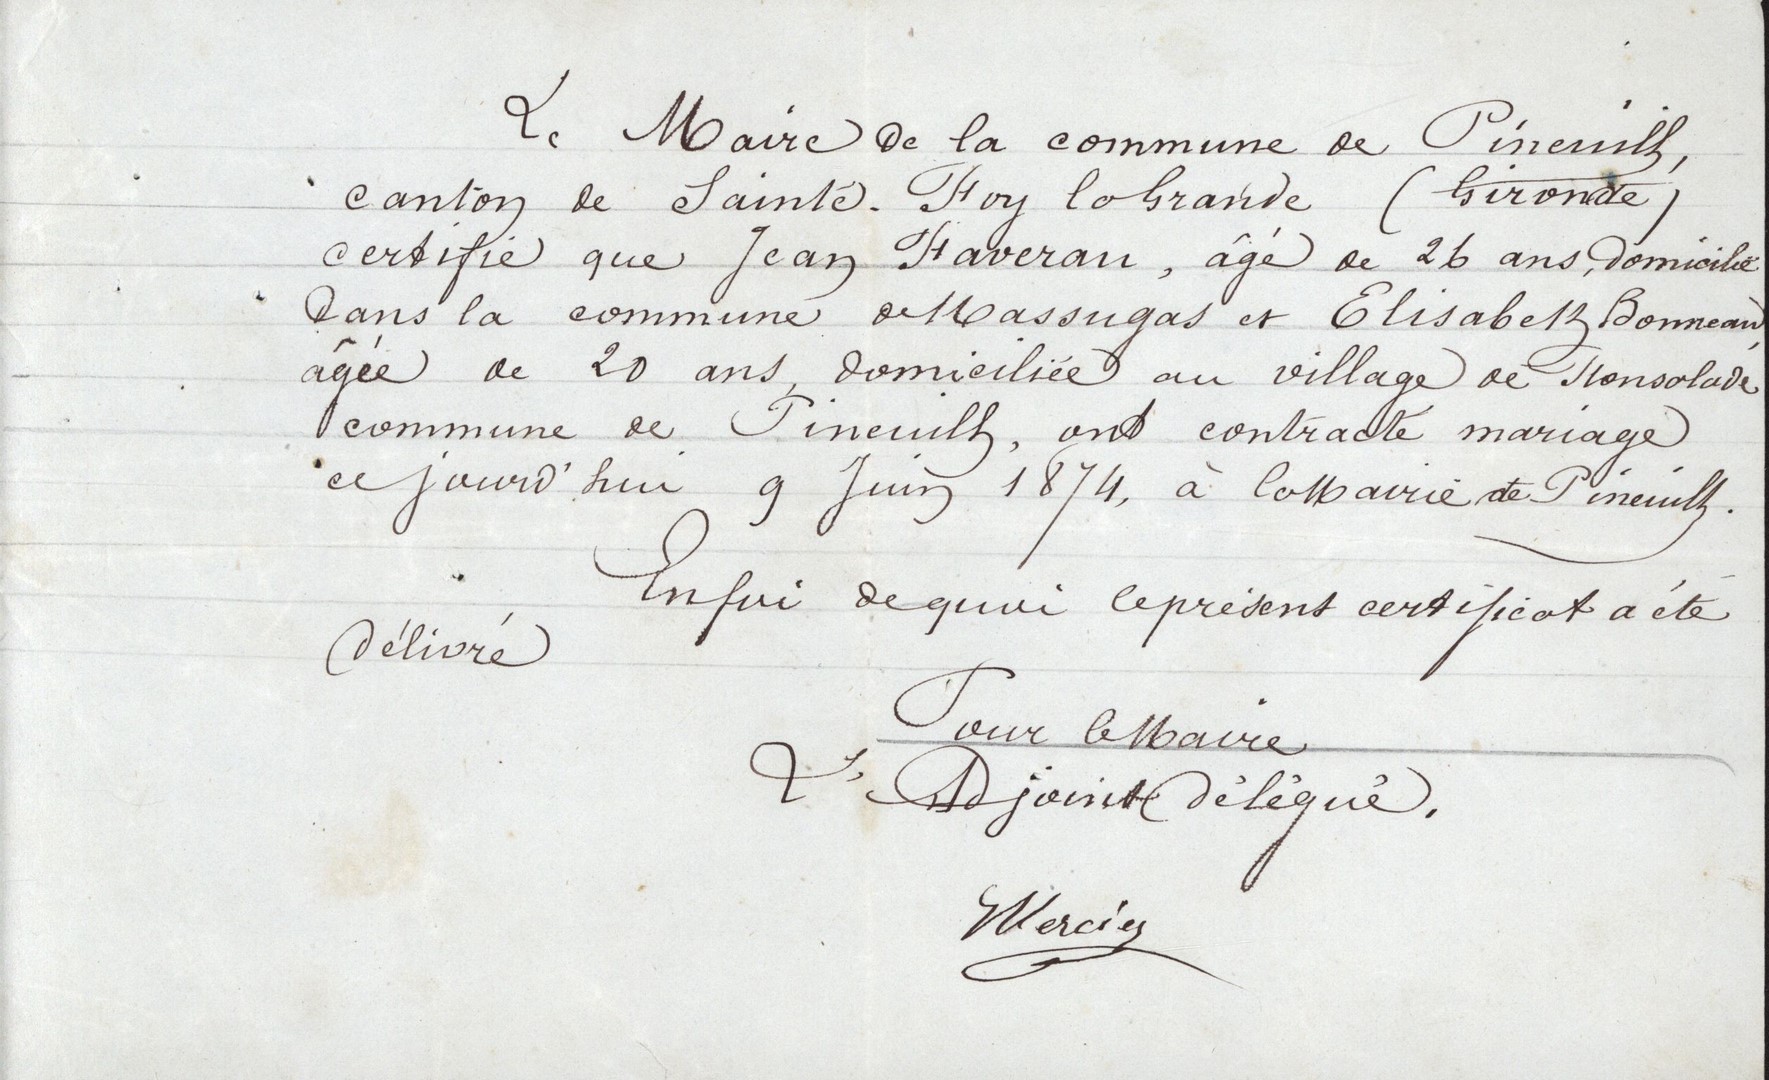 Le Maire de la commune de Pineuilh,
canton de Sainte-Foy la Grande (Gironde)
certifie que Jean Faverau, âgé de 26 ans, domicilié
dans la commune de Massugas et Elisabeth Bonneau,
âgée de 20 ans, domiciliée au village de
commune de Pineuilh, ont contracté mariage
ce jourd'hui 9 Juin 1874, à la Mairie de Pineuilh.
En foi de quoi le présent certificat a été
délivré
Pour le Maire
L'Adjoint délégué.
Mercier